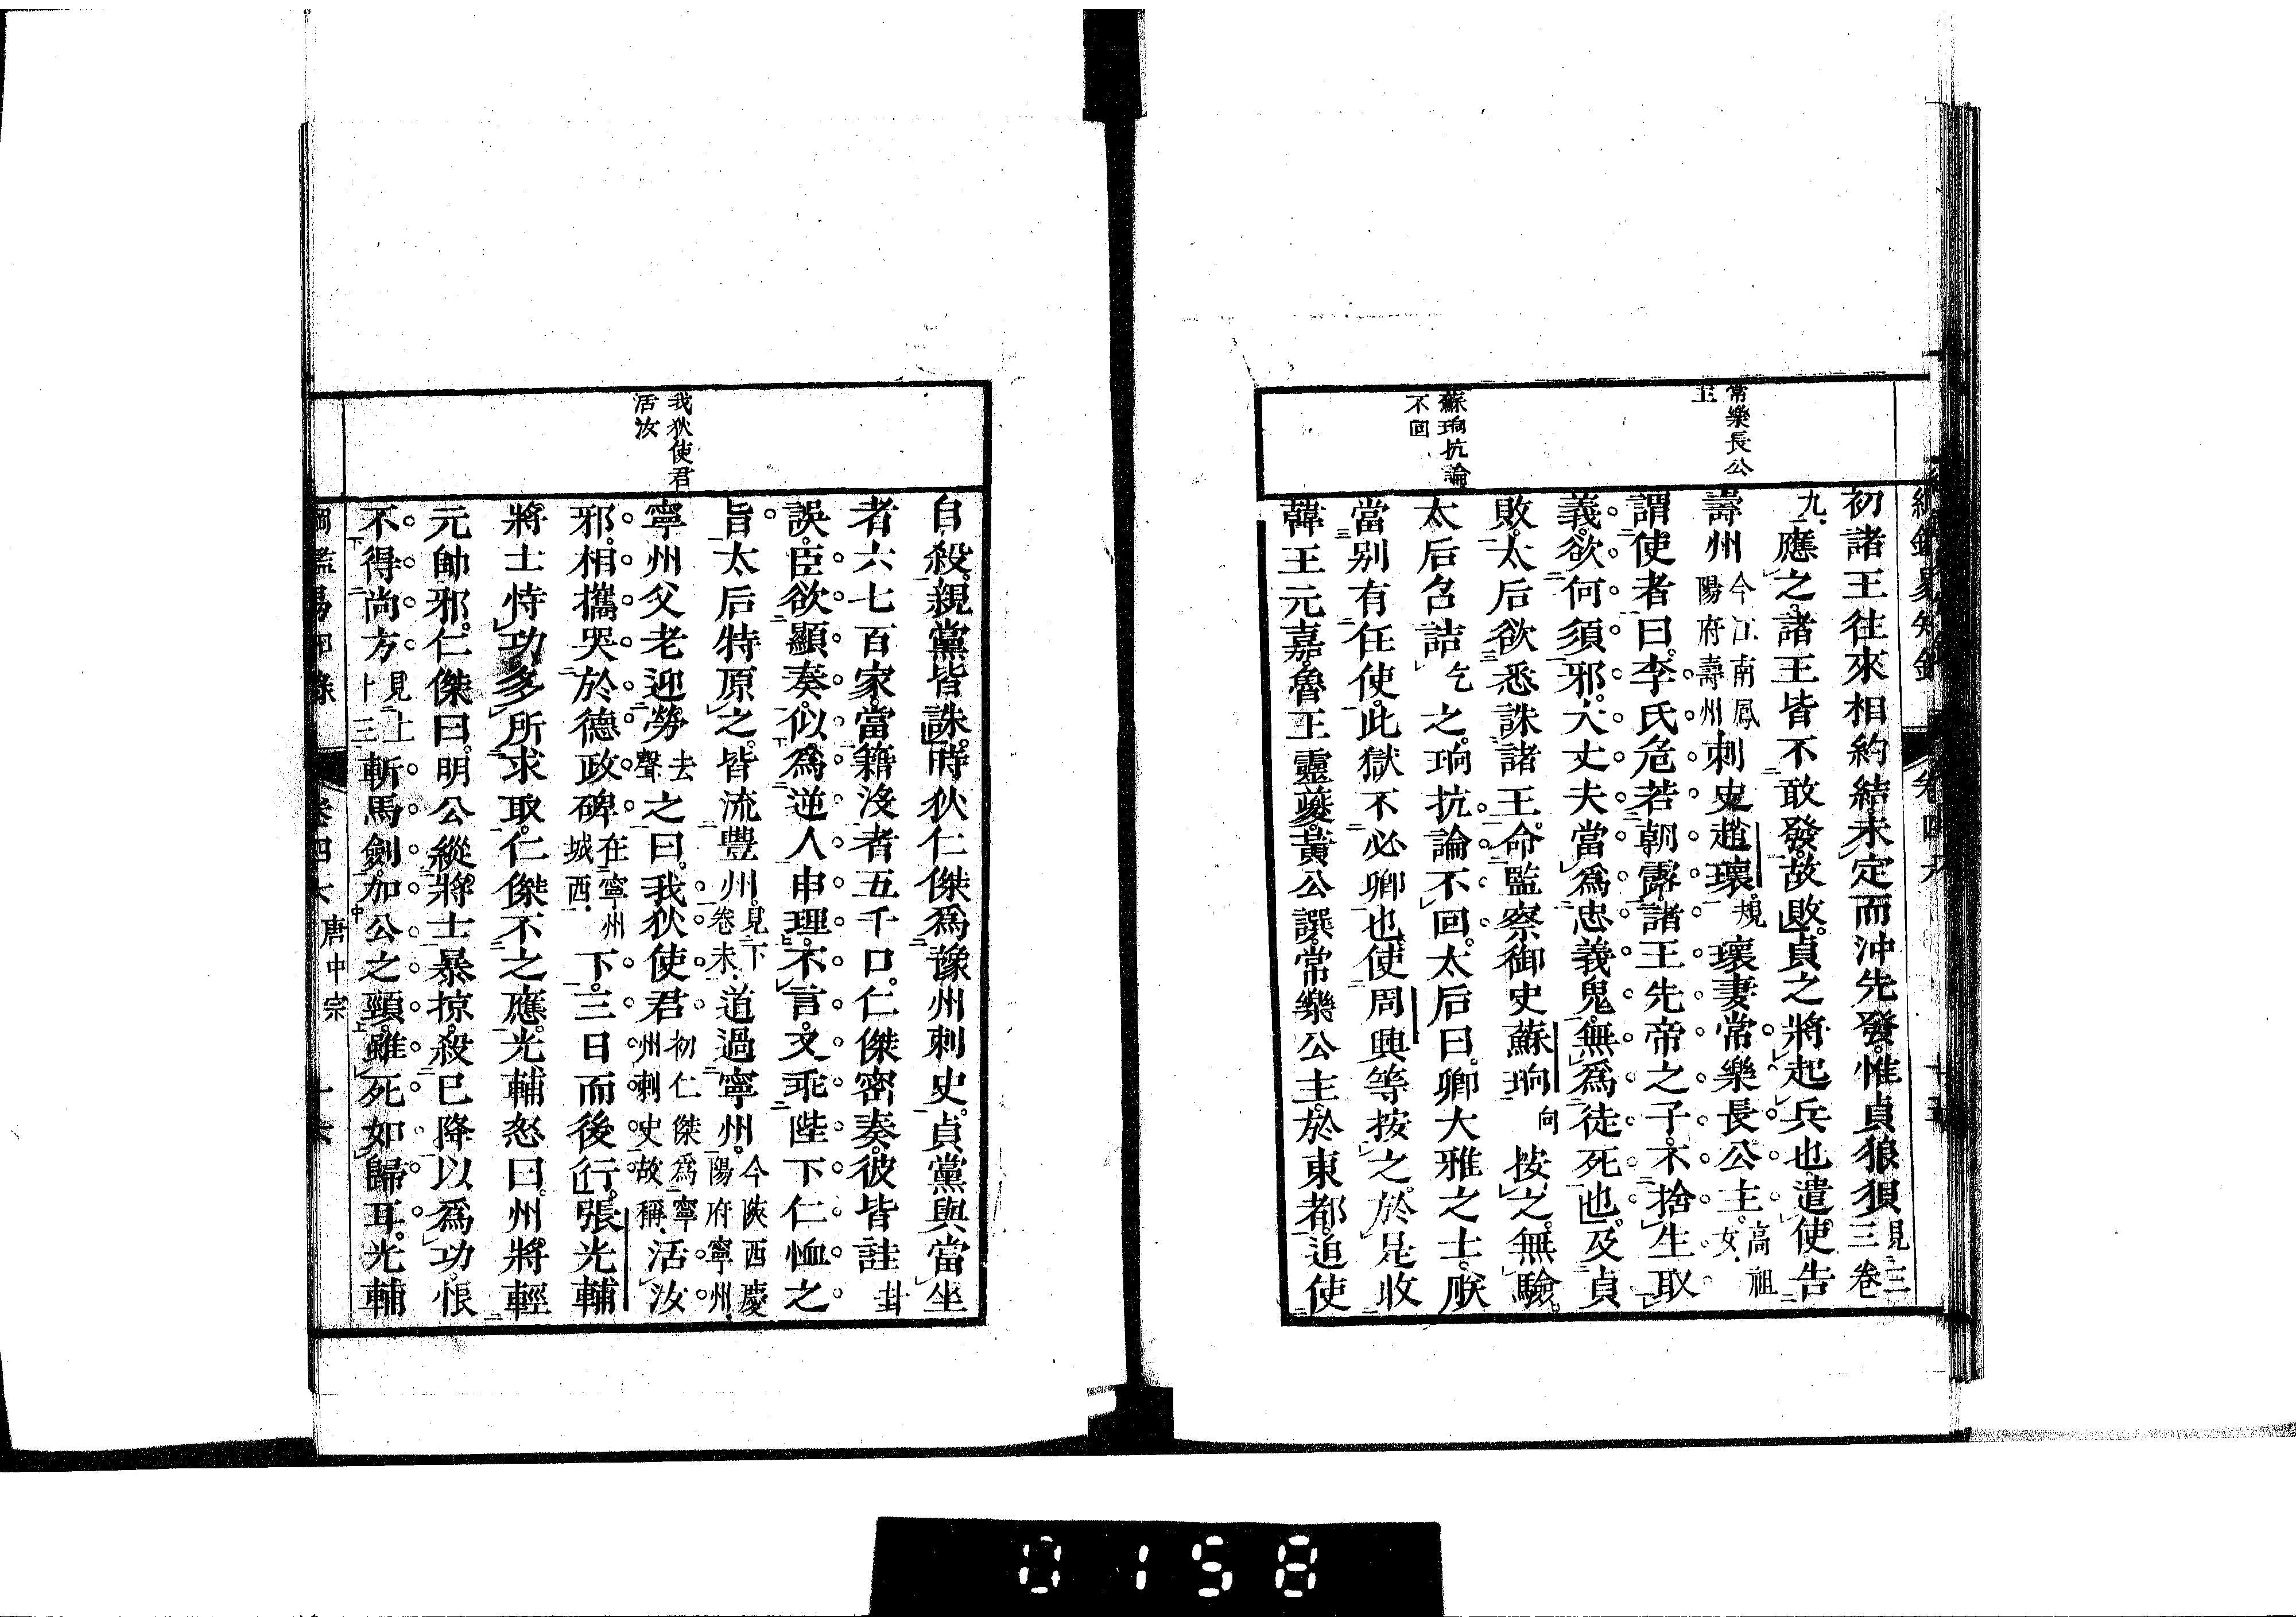 常樂長公
主
蘇珦抗論
不回
初諸王往來相約結未定而沖先發惟貞狼狽見三三卷
九應之諸王皆不敢發故敗貞之將起兵也遣使告
壽州今江南鳳陽府壽州刺史趙瓌規瓌妻常樂長公主高祖女
謂使者曰李氏危若朝露諸王先帝之子不捨生取
義欲何須邪大丈夫當爲忠義鬼無爲徒死也及貞
敗太后欲悉誅諸王命監察御史蘇珦向按之無驗
太后召詰乞之珦抗論不回太后曰卿大雅之士朕
當別有任使此獄不必卿也使周興等按之於是收
韓王元嘉魯王靈夔黃公譔常樂公主於東都迫使
我狄使君
活汝
自殺親黨皆誅時狄仁傑爲豫州刺史貞黨與當坐
者六七百家當籍沒者五千口仁傑密奏彼皆詿卦
誤臣欲顯奏似爲逆人申理不言又乖陛下仁恤之
旨太后特原之皆流豐州見下卷末道過寧州今陝西慶陽府寧州
寧州父老迎勞去聲之曰我狄使君初仁傑爲寧州刺史故稱活汝
邪相攜哭於德政碑在寧州城西下三日而後行張光輔
將士恃功多所求取仁傑不之應光輔怒曰州將輕
元帥邪仁傑曰明公縱將士暴掠殺已降以爲功恨
不得尚方見上十三斬馬劍加公之頸雖死如歸耳光輔
綱鑑易知錄 卷四六 唐中宗 十六
0158